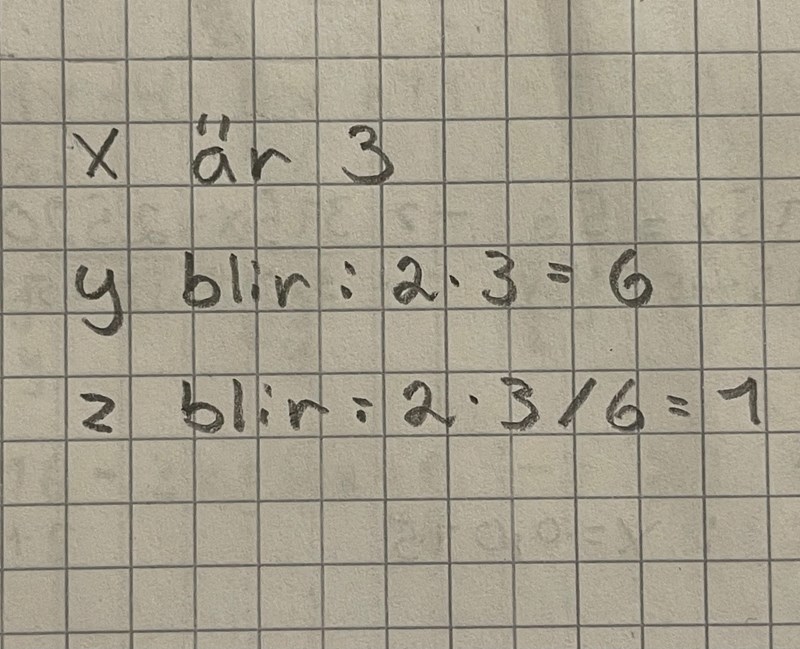 x är 3
y blir: 2·3=6
z blir: 2·3/6=1